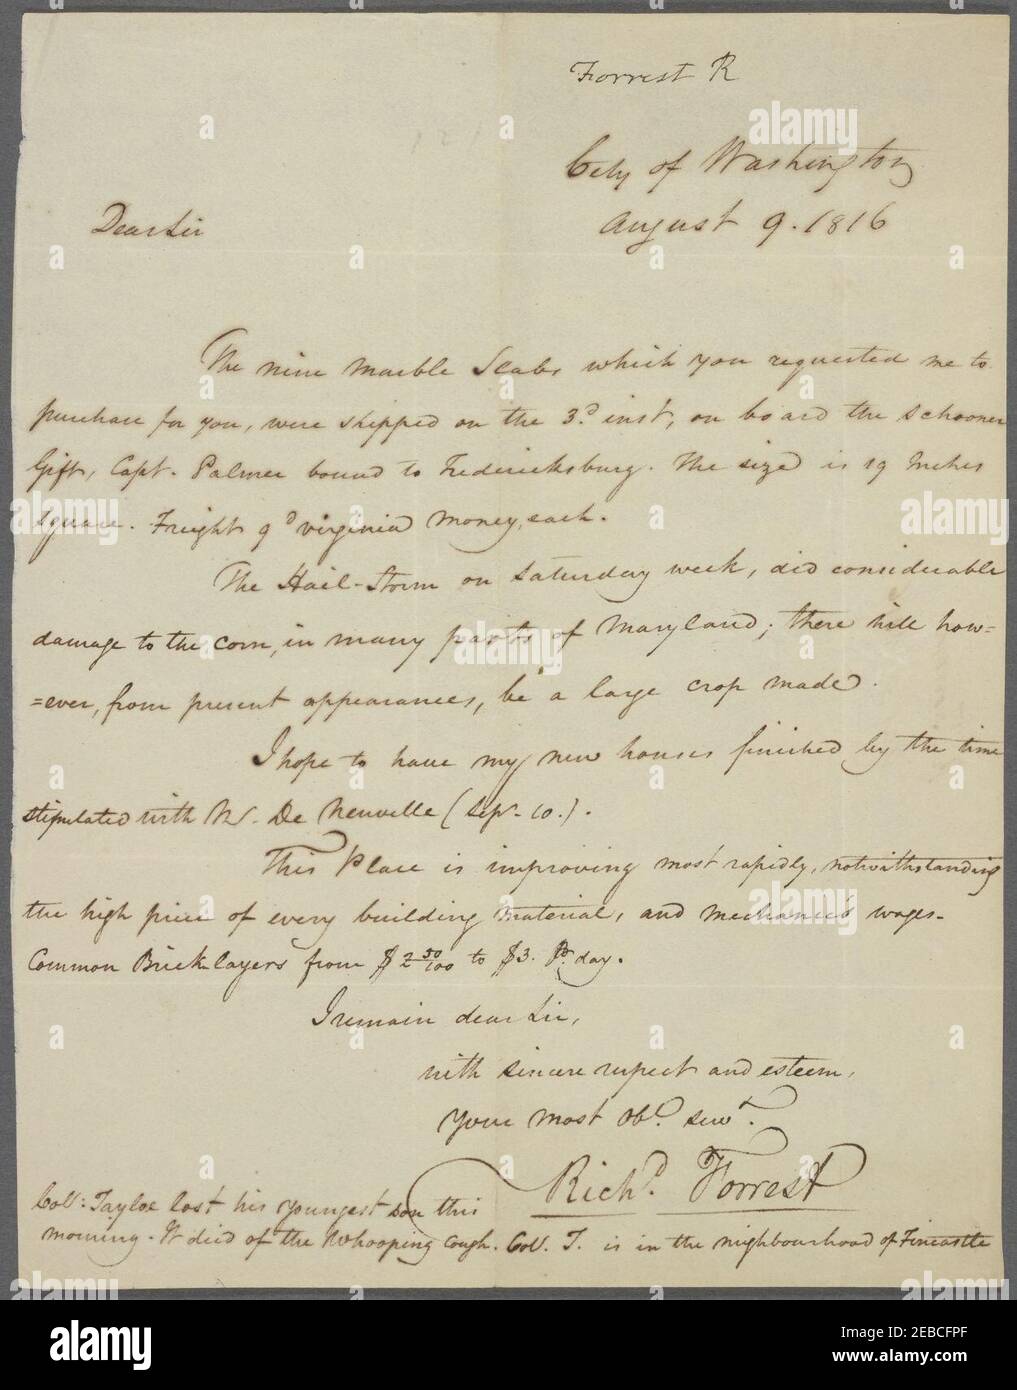 Forrest R
City of Washington
August 9. 1816
Dear Sir
The nine Marble Slabs which you requested me to
purchase for you, were shipped on the 3.d inst, on board the Schooner
Gift, Capt. Palmer bound to Fredericksburg. The size is 19 Inches
square. Freight 9d virginia money, each.
The Hail-Storm on Saturday week, did considerable
damage to the corn, in many parts of Maryland; there will how=
=ever, from present appearances, be a large crop made.
I hope to have my new houses finished by the time
stipulated with M. De Neuville (Sepr. 10.).
This Place is improving most rapidly, notwithstanding
the high price of every building material, and mechanic's wages.
Common Bricklayers from $2 50/100 to $3. Pr. day.
I remain dear Sir,
with sincere respect and esteem,
your most Obt. servt.
Richd. Forrest
Col: Tayloe lost his youngest son this
morning. It died of the Whooping cough. Col. T. is in the neighbourhood of Fincastle
alamy
a
Image ID: 2EBCFPF
www.alamy.com